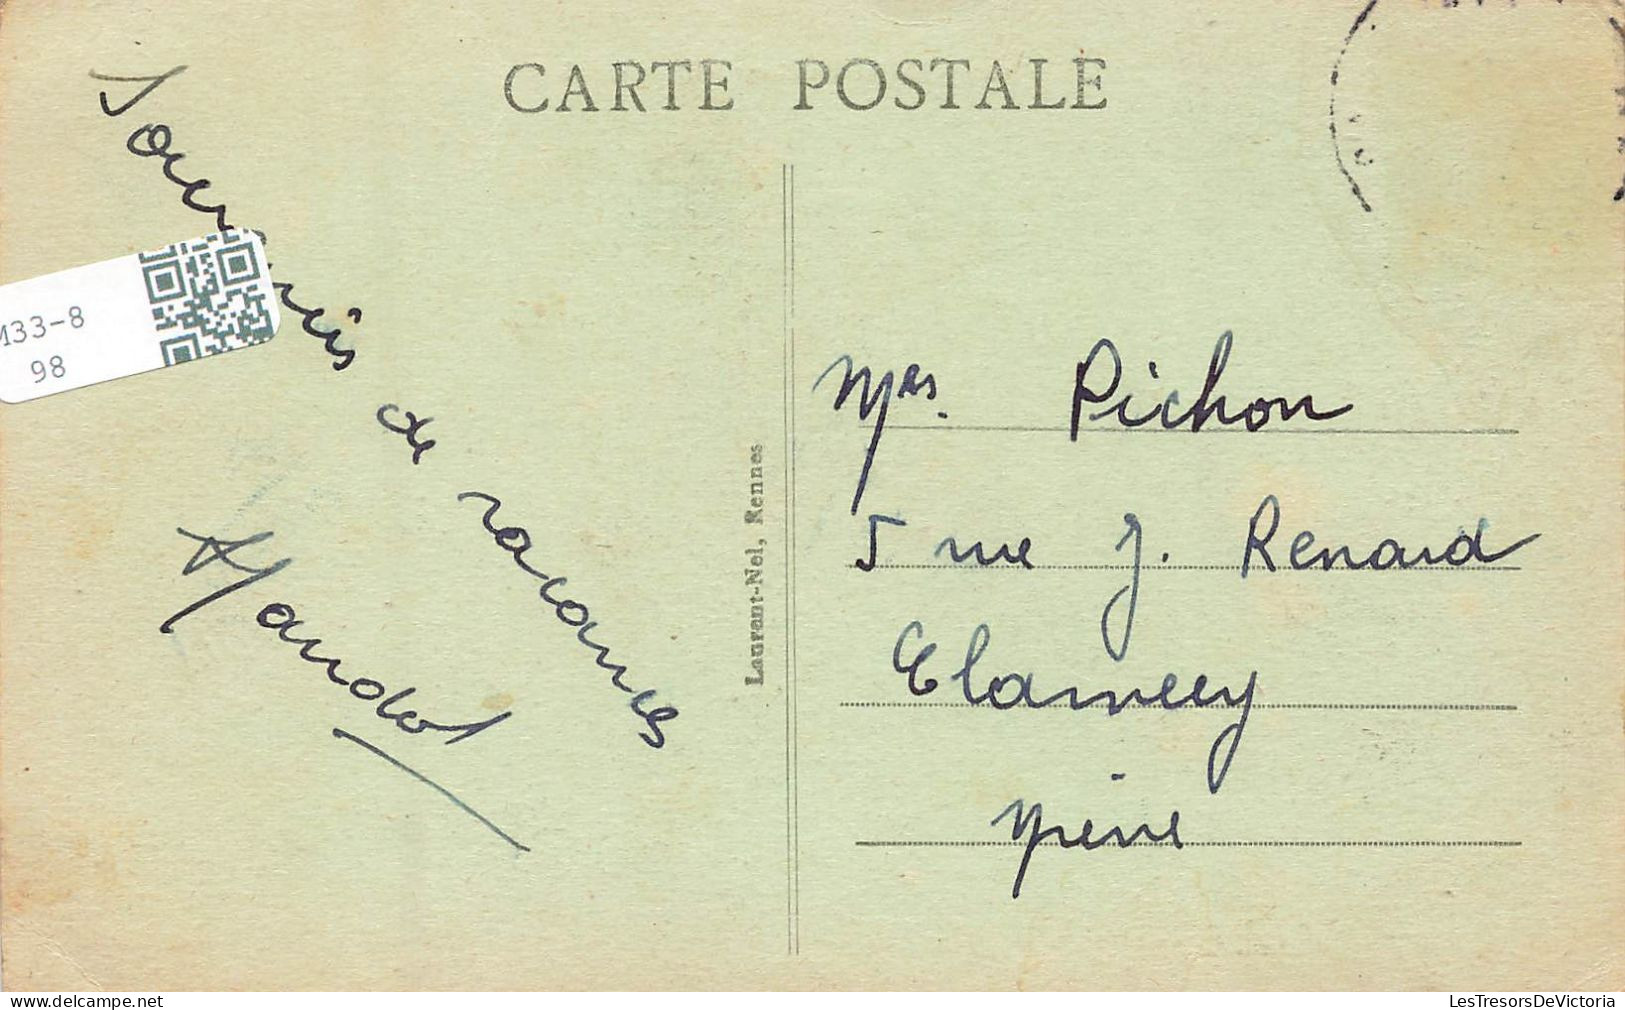 CARTE POSTALE
Souvenirs de vacances
Mandot
133-8
98
Laurent-Nel, Rennes
Mrs. Pichon
5 rue J. Renard
Clamecy
Nièvre
LesTresorsDeVictoria